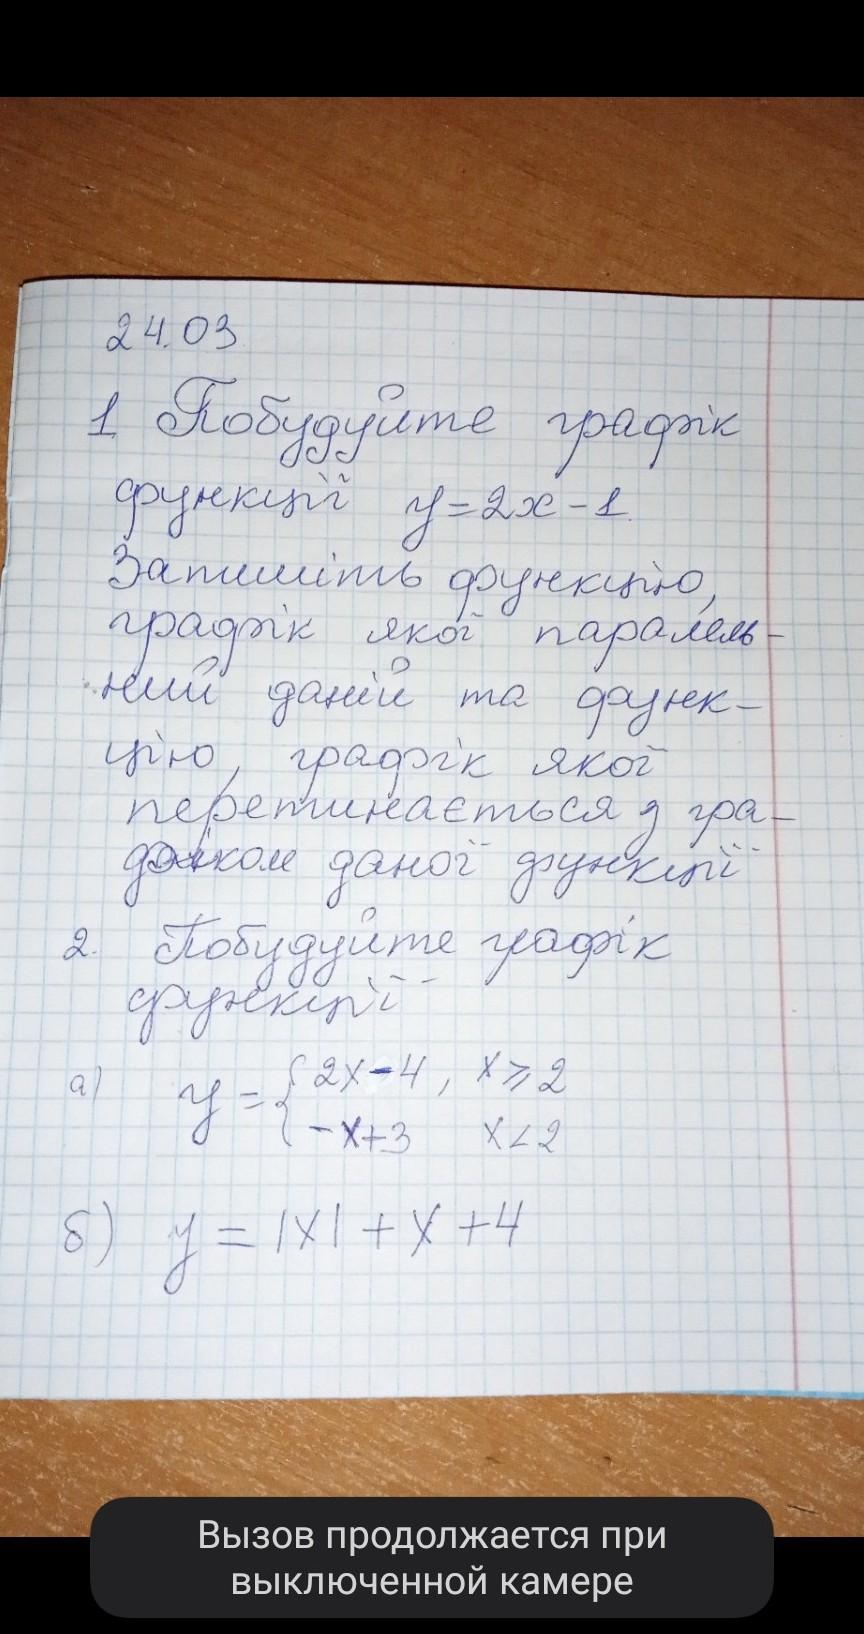 24.03
1 Побудуйте графік
функції y=2x-1.
Запишіть функцію,
графік якої паралель-
ний даній та функ-
цію, графік якої
перетинається з гра-
фіком даної функції
2. Побудуйте графік
функції
а) y = { 2x-4, x ⩾ 2
-x+3 x < 2
б) y = |x| + x + 4
Вызов продолжается при
выключенной камере